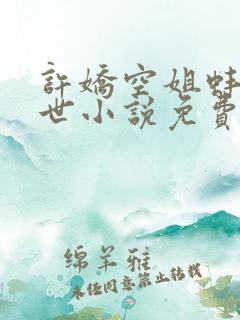 許嬌空姐蚌
世小說免費
绵羊雅
未经同意禁止转载